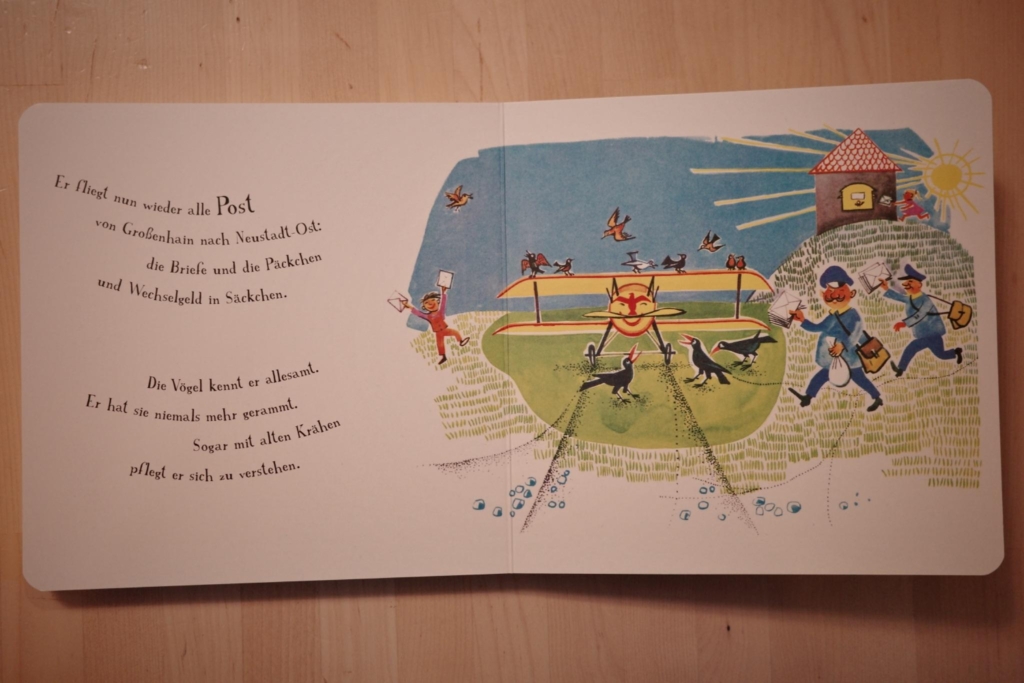 Er fliegt nun wieder alle Post
von Großenhain nach Neustadt-Ost:
die Briefe und die Päckchen
und Wechselgeld in Säckchen.
Die Vögel kennt er allesamt.
Er hat sie niemals mehr gerammt.
Sogar mit alten Krähen
pflegt er sich zu verstehen.